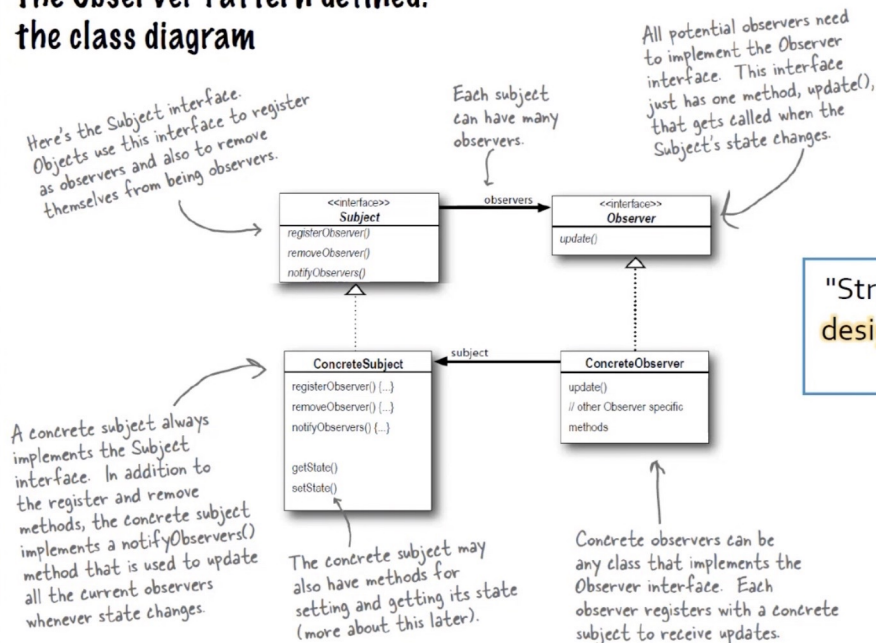 the class diagram
Here's the Subject interface.
Objects use this interface to register
as observers and also to remove
themselves from being observers.
Each subject
can have many
observers.
All potential observers need
to implement the Observer
interface. This interface
just has one method, update(),
that gets called when the
Subject's state changes.
<<interface>>
Subject
registerObserver()
removeObserver()
notifyObservers()
observers
<<interface>>
Observer
update()
"Str
desi
ConcreteSubject
registerObserver() {...}
removeObserver() {...}
notifyObservers() {...}
getState()
setState()
subject
ConcreteObserver
update()
// other Observer specific
methods
A concrete subject always
implements the Subject
interface. In addition to
the register and remove
methods, the concrete subject
implements a notifyObservers()
method that is used to update
all the current observers
whenever state changes.
The concrete subject may
also have methods for
setting and getting its state
(more about this later).
Concrete observers can be
any class that implements the
Observer interface. Each
observer registers with a concrete
subject to receive updates.